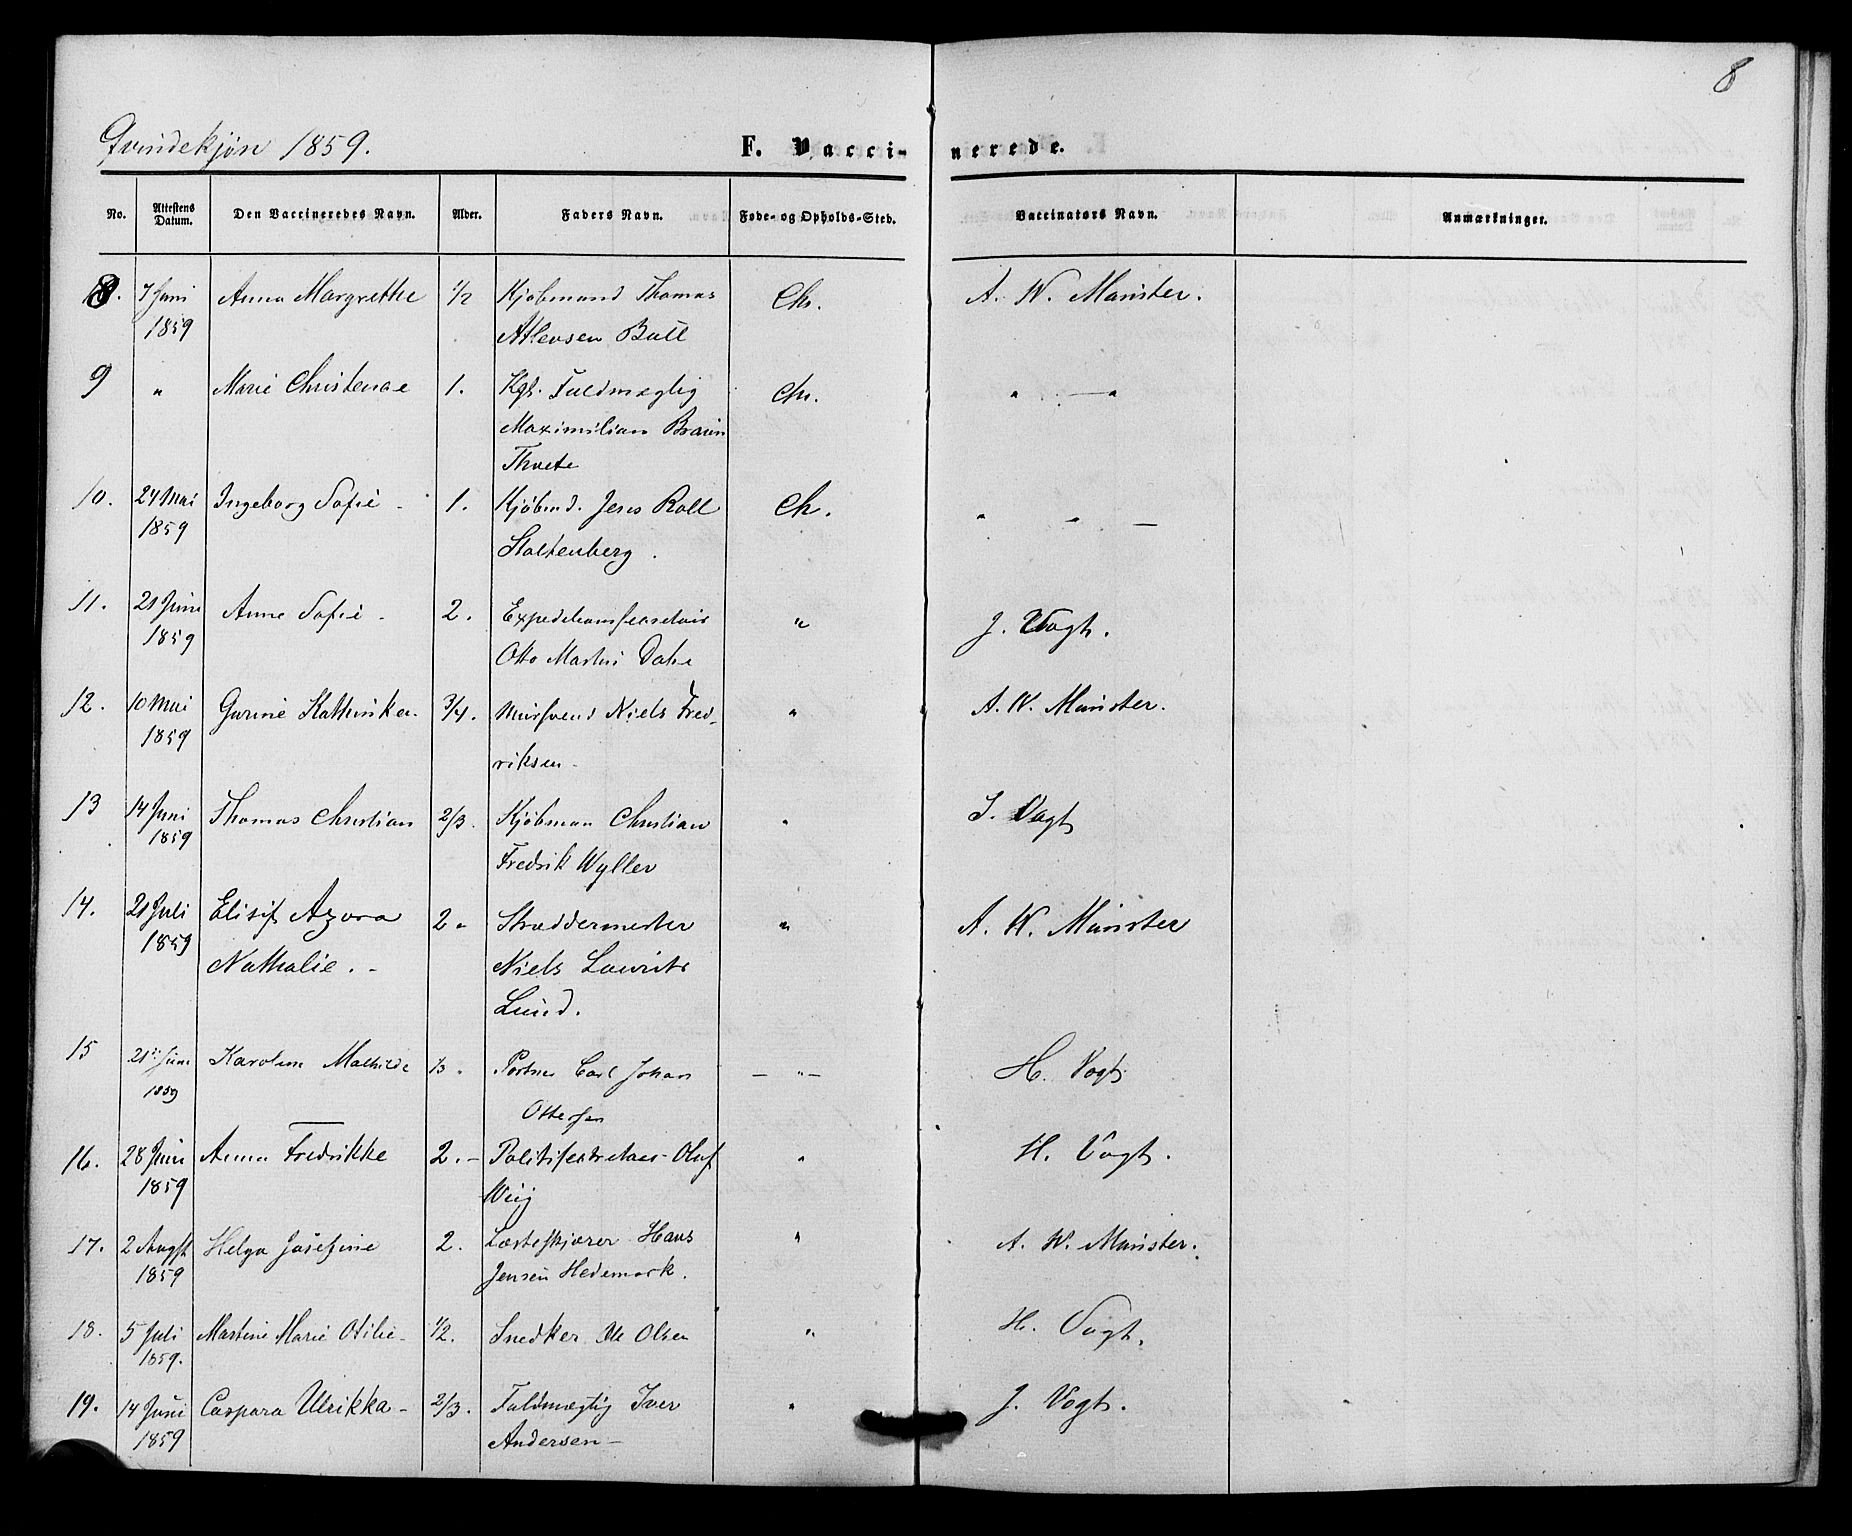 8
Qvindekjøn 1859.
F. Vaccinerede.
No. Attestens Datum. Den Vaccineredes Navn. Alder. Faders Navn. Føde- og Opholds-Sted. Vaccinators Navn. Anmærkninger.
8. 7 Juni Anna Margrethe 1/2 Kjøbmand Thomas Ch. A. W. Münster.
1859 Bull
9 " Marie 1. Kgl. Fuldmægtig Ch. " — "
Maximilian Braun
Thvete
10. 24 Mai Ingeborg Sofie - 1. Kjøbmd. Jens Roll Ch. " " —
1859 Stoltenberg.
11. 21 Juni Anne Sofie - 2. " J. Vogt.
1859 Otto Martin
12. 10 Mai Gurine Kathinka. 3/4. Mürsvend Niels Fred- " A. W. Münster.
1859 riksen -
13 14 Juni Thomas Christian 2/3. Kjøbman Christian " J. Vogt
1859 Fredrik Wyller
14. 21 Juli Elisif Azora 2 " Skræddermester " A. W. Münster
1859 Nathalie. - Niels Laurits
Lund.
15 21de Juni Karoline Mathilde Portner Carl Johan — " — H. Vogt
1859 Ottersen
16. 28 Juni Anna Fredrikke 2. - Olaf " H. Vogt.
1859
17. 2 Augst Helga Josefine 2. Hans " A. W. Münster.
1859 Jensen Hedemark.
18. 5 Juli Martine Marie Otilie - 1/2. Snedker Ole Olsen " H. Vogt.
1859.
19. 14 Juni Caspara Ulrikka - 2/3. Fuldmægtig Iver " J. Vogt.
1859 Andersen -